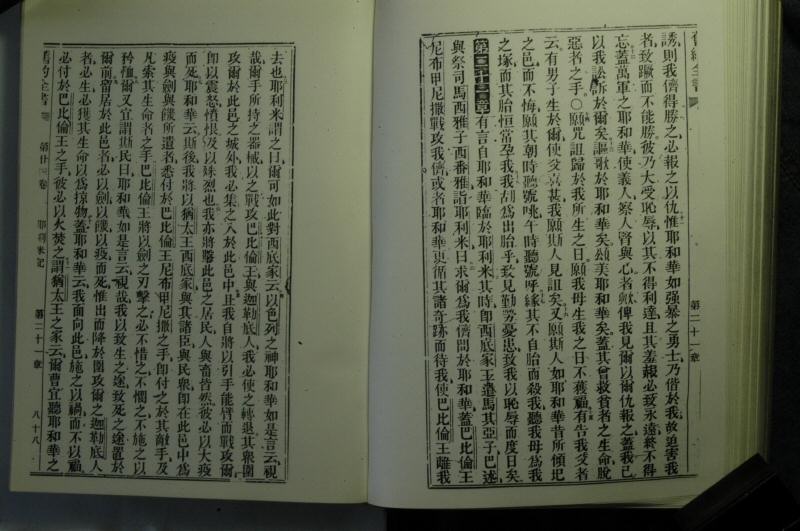 舊約全書
第二十一章
誘則我儕得勝之必報之以仇惟耶和華如强暴之勇士乃偕於我故迫害我
者致蹶而不能勝彼乃大受恥辱以其不得利達且其羞報必致永遠終不得
忘蓋萬軍之耶和華使義人察人腎與心者歟俾我見爾以爾仇報之蓋我已
以我訟訴於爾矣謳歌於耶和華矣頌美耶和華矣蓋其曾救貧者之生命脫
惡者之手○願咒詛歸於我所生之日願我母生我之日不獲福有告我父者
云有男子生於爾使父喜甚我願斯人見詛矣又願斯人如耶和華昔所傾圮
之邑而不悔願其朝時聽號咷午時聽號呼緣其不自胎而殺我聽我母爲我
之塚而其胎恒常孕我我胡爲出胎乎致見勤勞憂患致我以恥辱而度日矣
第二十一章有言自耶和華臨於耶利米其時卽西底家王遣馬其亞子巴述
與祭司馬西雅子西番雅詣耶利米曰求爾爲我儕問於耶和華蓋巴比倫王
尼布甲尼撒戰攻我儕或者耶和華更循其諸奇跡而待我使巴比倫王離我
去也耶利米謂之曰爾可如此對西底家云以色列之神耶和華如是言云視
哉爾手所持之器械以之戰攻巴比倫王與迦勒底人我必使之轉退其衆圍
攻爾於此邑之城外我必集之入於此邑中且我自將以引手能臂而戰攻爾
卽以震怒憤恨及以殊烈也我亦將擊此邑之居民人與畜皆然彼必以大疫
而死耶和華云斯後我將以猶太王西底家與其諸臣與民衆卽在此邑中爲
疫與劍與饑所遺者悉付於巴比倫王尼布甲尼撒之手卽付之於其敵手及
凡索其生命者之手巴比倫王將以劍之刃擊之必不惜之不憫之不施之以
矜恤爾又宜謂斯民曰耶和華如是言云視哉我以致生之途致死之途置於
爾前留居於此邑者必以劍以饑以疫而死惟出而降於圍攻爾之迦勒底人
者必生必獲其生命以爲掠物蓋耶和華云我面向此邑施之以禍而不以福
必付於巴比倫王之手彼必以火焚之謂猶太王之家云爾曹宜聽耶和華之
舊約全書
第廿四卷
耶利米記
第二十一章
八十八